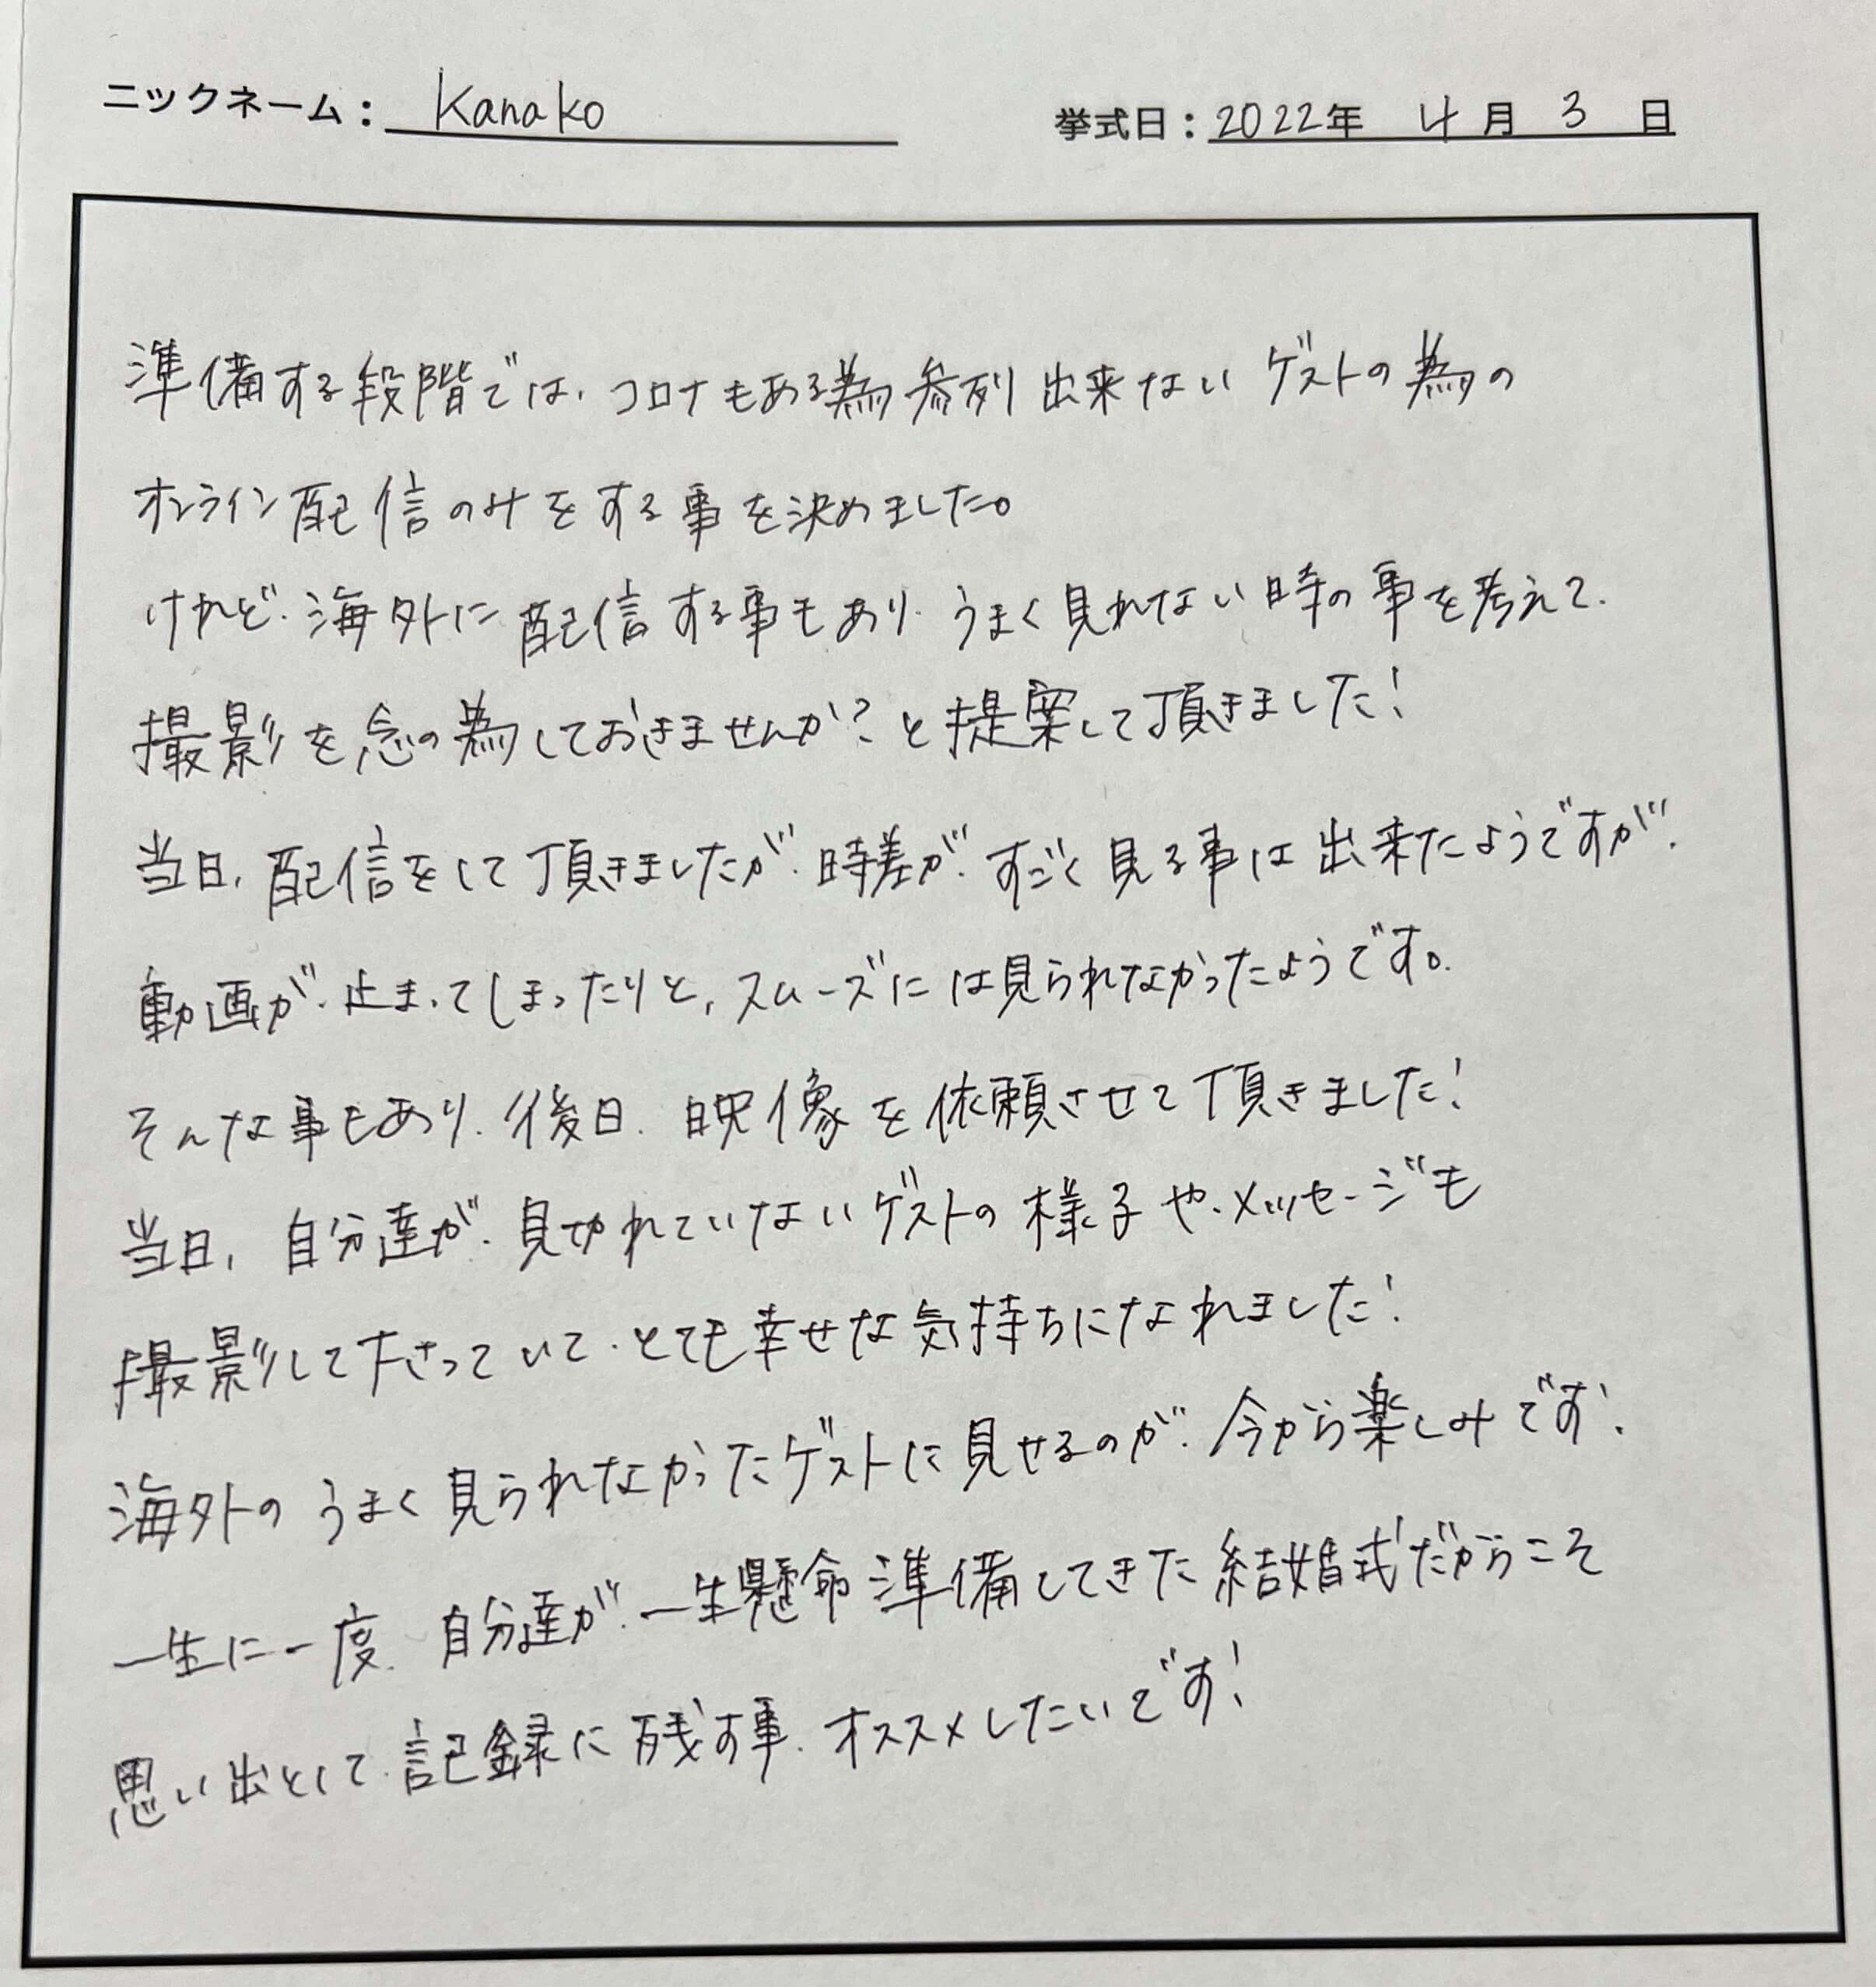 ニックネーム： Kanako 挙式日：2022年 4月 3日
準備する段階では、コロナもある為参列出来ないゲストの為の
オンライン配信のみをする事を決めました。
けれど、海外に配信する事もあり、うまく見れない時の事を考えて、
撮影を念の為しておきませんか？と提案して頂きました！
当日、配信をして頂きましたが、時差が、すごく見る事は出来たようですが、
動画が、止まってしまったりと、スムーズには見られなかったようです。
そんな事もあり、後日、映像を依頼させて頂きました！
当日、自分達が、見切れていないゲストの様子や、メッセージも
撮影して下さっていて、とても幸せな気持ちになれました！
海外のうまく見られなかったゲストに見せるのが、今から楽しみです！
一生に一度、自分達が、一生懸命準備してきた結婚式だからこそ
思い出として、記録に残す事、オススメしたいです！